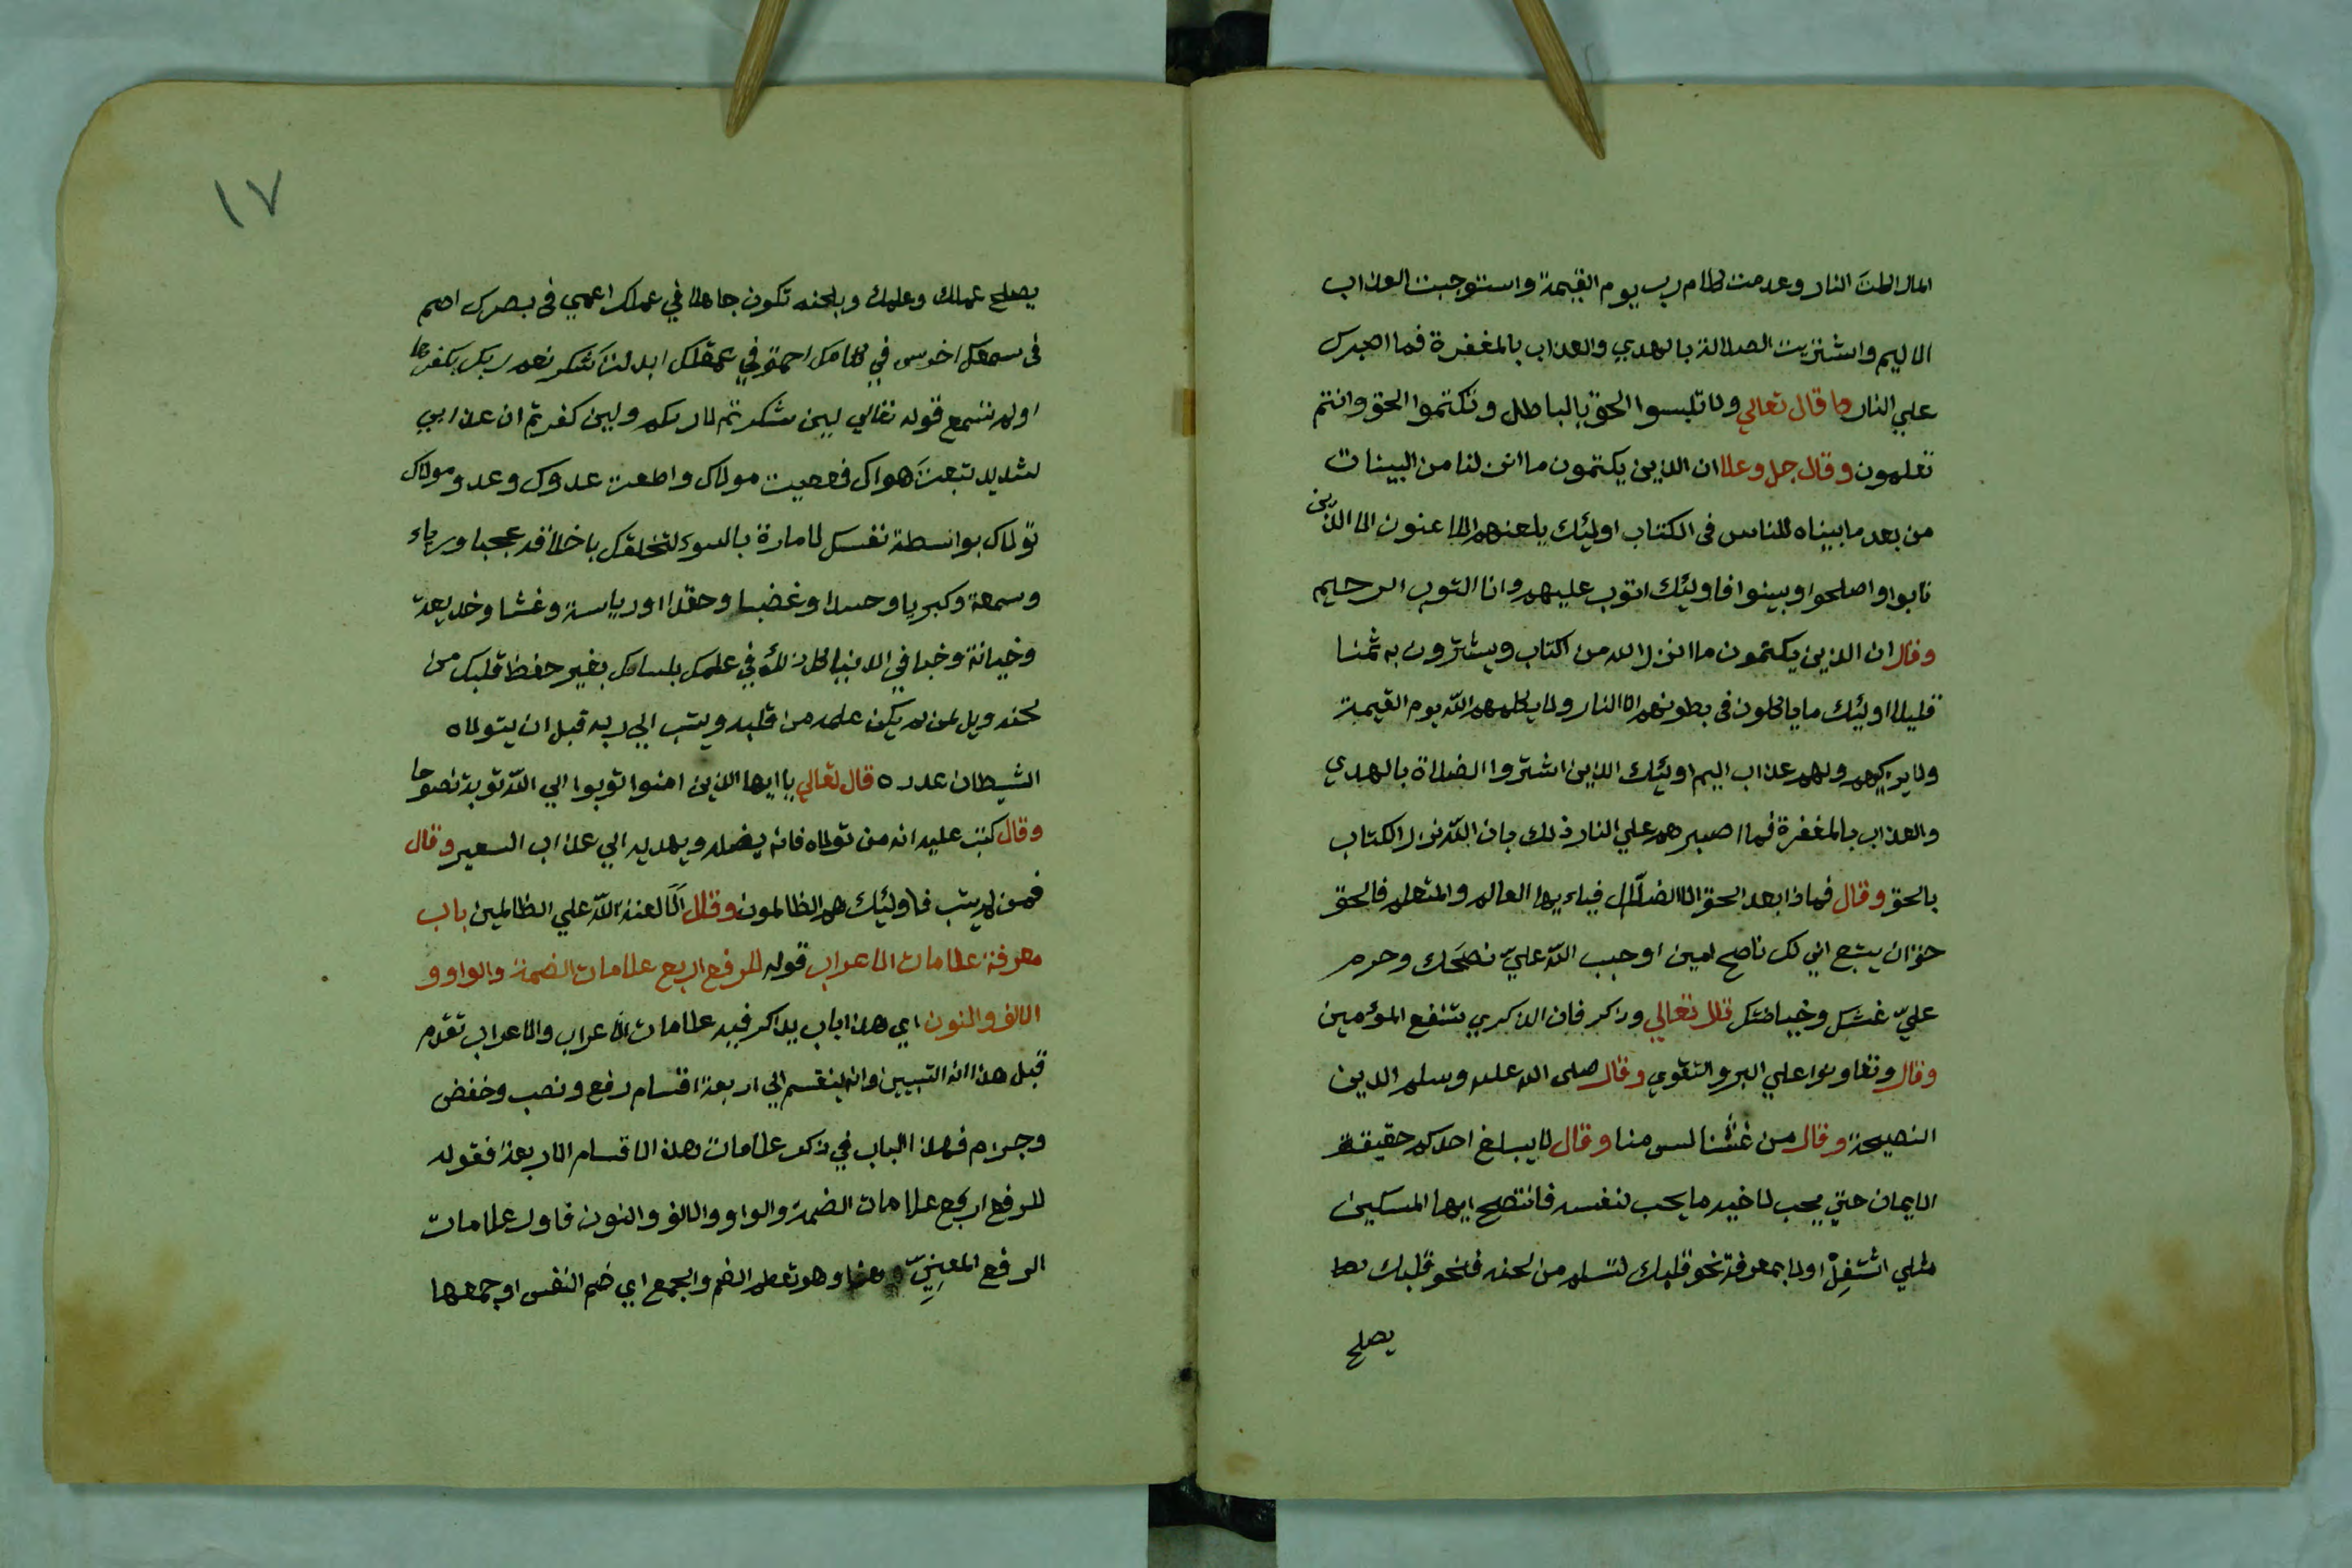 المال اكلت النار وعدمت كلام رب يوم القيمة واستوجبت العذاب
الاليم واشتريت الضلالة بالهدي والعذاب بالمغفرة فما اصبرك
علي النار وما قال تعالي ولا تلبسوا الحق بالباطل وتكتموا الحق وانتم
تعلمون وقال جل وعلا ان الذين يكتمون ما انزلنا من البينات
من بعد ما بيناه للناس في الكتاب اوليئك يلعنهم اللاعنون الا الذين
تابوا واصلحوا وبينوا فاوليئك اتوب عليهم وانا التوب الرحيم
وقال ان الذين يكتمون ما انزل الله من الكتاب ويشترون به ثمنا
قليلا اوليئك ما ياكلون في بطونهم الا النار ولا يكلمهم الله يوم القيمة
ولا يزكيهم ولهم عذاب اليم اوليئك الذين اشتروا الضلاة بالهدي
والعذاب بالمغفرة فما اصبرهم علي النار ذلك بان الله نزل الكتاب
بالحق وقال فماذا بعد الحق الا الضلال فياءيها العالم والمتعلم فالحق
حق ان يتبع اني لك ناصح امين اوجب الله عليّ نصحك وحرم
عليّ غشك وخيانتك قال تعالي وذكر فان الذكري تنفع المؤمين
وقال وتعاونوا علي البر والتقوي وقال صلى الله عليه وسلم الدين
النصيحة وقال من غشنا ليس منا وقال لا يبلغ احدكم حقيقة
الايمان حتي يحب لاخيه ما يحب لنفسه فانتصح ايها المسكين
مثلي اشتغل اولا بمعرفة نحو قلبك لتسلم من لحنه فنحو قلبك بها
يصلح
١٧
يصلح عملك وعلمك وبلحنه تكون جاهلا في عملك اعمي في بصرك اصم
في سمعك اخرس في كلامك احمق في عقلك ابدلت شكر نعم ربك بكفرها
اولم تسمع قوله تعالي ليين شكرتم لازيدنكم وليين كفرتم ان عذابي
لشديد تبعت هواك فعصيت مولاك واطعت عدوك وعدو مولاك
تولاك بواسطة نفسك الامارة بالسوء لتخلقك باخلاقه عجبا ورياء
وسمعة وكبريا وحسدا وغضبا وحقدا اورياسة وغشا وخديعة
وخيانة وخبا في الدنيا كل ذلك في علمك بلسانك بغير حفظ قلبك من
لحنه ويل لمن لم يكن علمه من قلبه ويتب الي ربه قبل ان يتولاه
الشيطان عدره قال تعالي يا ايها الذين امنوا توبوا الي الله توبة نصوحا
وقال كتب عليه انه من تولاه فانه يضله ويهديه الي عذاب السعير وقال
فمن لم يتب فاوليئك هم الظالمون وقال الا لعنة الله علي الظالمين باب
معرفة علامات الاعراب قوله للرفع اربع علامات الضمة والواو و
الالف والنون اي هذا باب يذكر فيه علامات الاعراب والاعراب تقدم
قبل هذا انه التبيين وانه لينقسم الي اربعة اقسام رفع ونصب وخفض
وجزم فهذا الباب في ذكر علامات هذه الاقسام الاربعة فقوله
للرفع اربع علامات الضمة والواو والالف والنون فاول علامات
الرفع المعنِيّ وهو تعلم الضم والجمع اي ضم النفس او جمعها